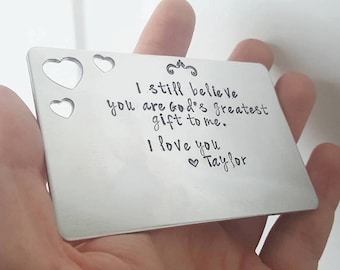 I still believe
you are God's greatest
gift to me.
I love you
♥ Taylor